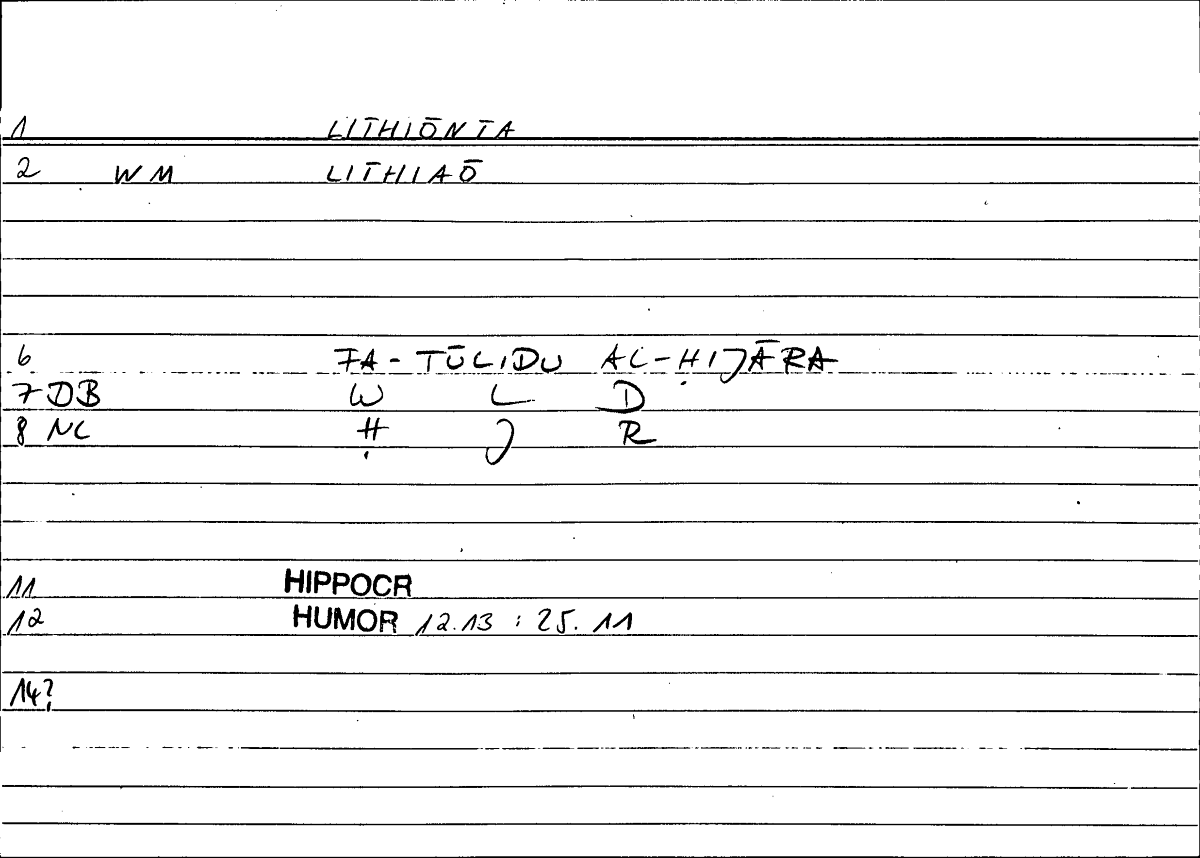 1 LITHIŌNTA
2 WM LITHIAŌ
6 FA-TŪLIDU AL-ḤIJĀRA
7 DB W L D
8 NC Ḥ J R
11 HIPPOCR
12 HUMOR 12.13 : 25.11
14?